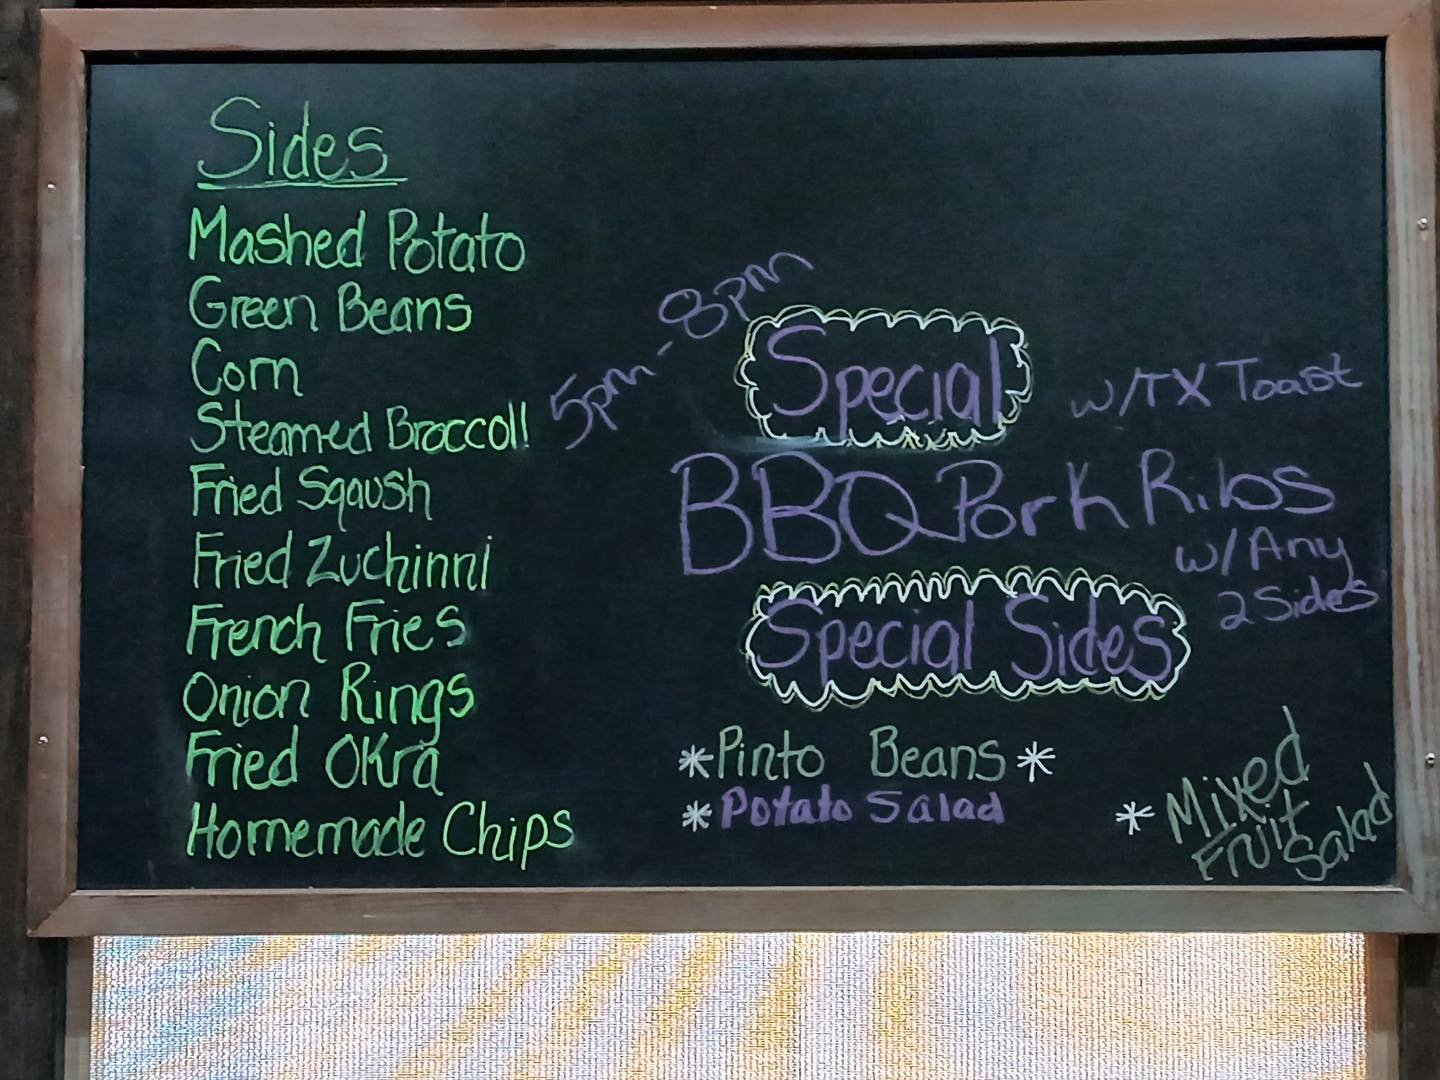 Sides
Mashed Potato
Green Beans
Corn
Steamed Broccoli
Fried Sqaush
Fried Zuchinni
French Fries
Onion Rings
Fried Okra
Homemade Chips
5pm-8pm
Special
w/TX Toast
BBQ Pork Ribs
w/Any
2 Sides
Special Sides
*Pinto Beans*
*Potato Salad
*Mixed
Fruit
Salad